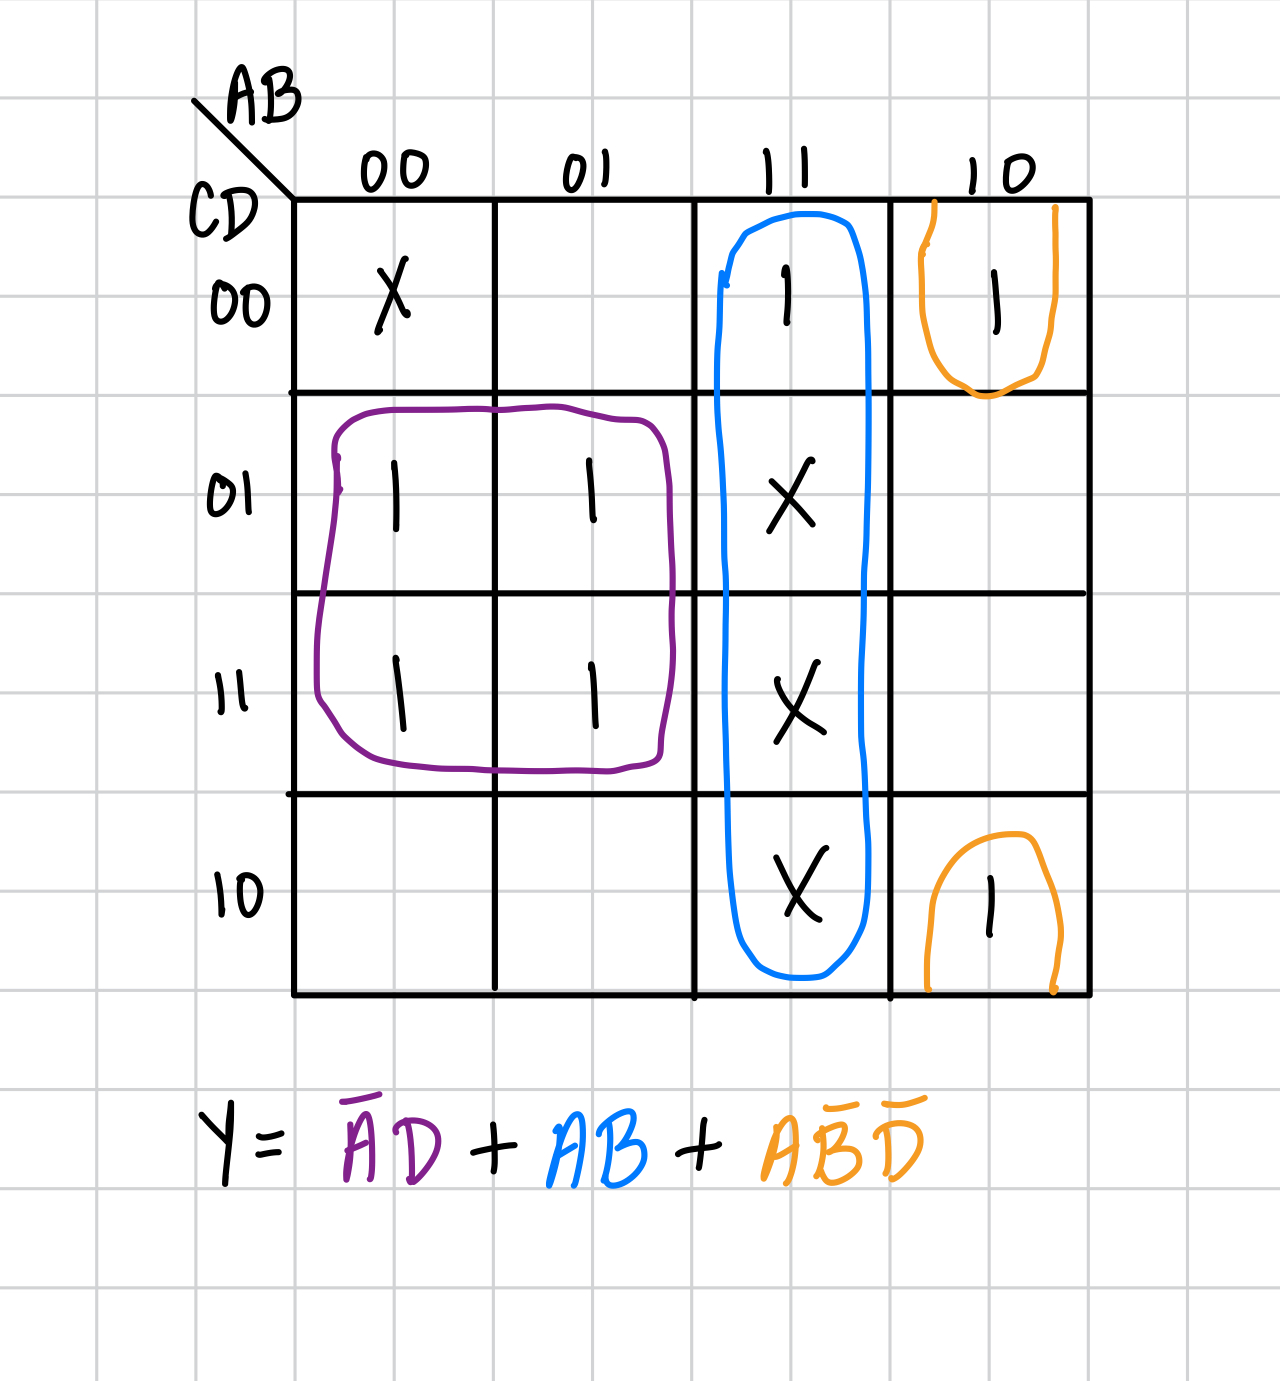 AB
CD 00 01 11 10
00 X 1 1
01 1 1 X
11 1 1 X
10 X 1
Y = A̅D + AB + AB̅D̅